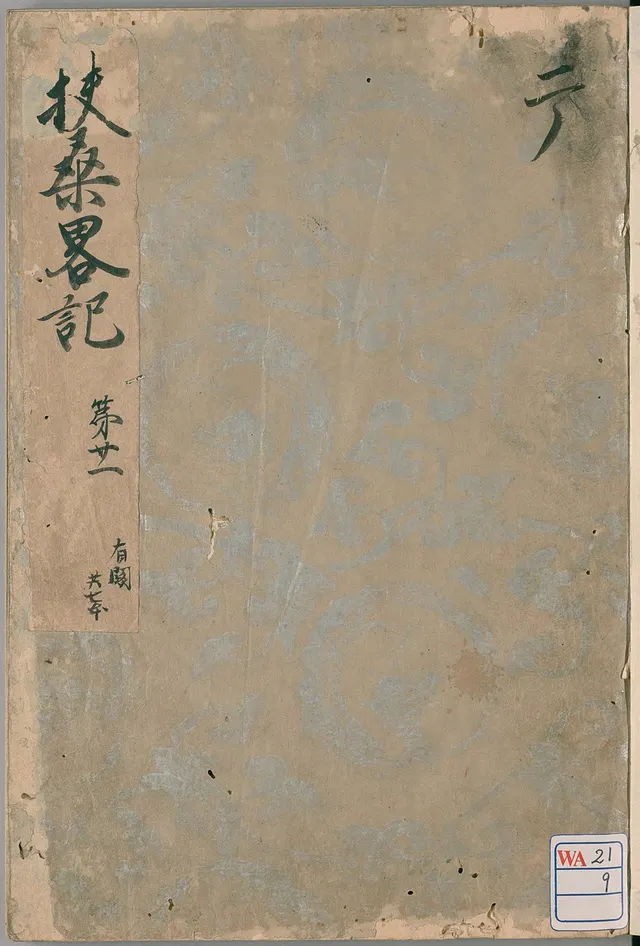 扶桑畧記
第廿一
有闕
共七本
WA 21
9